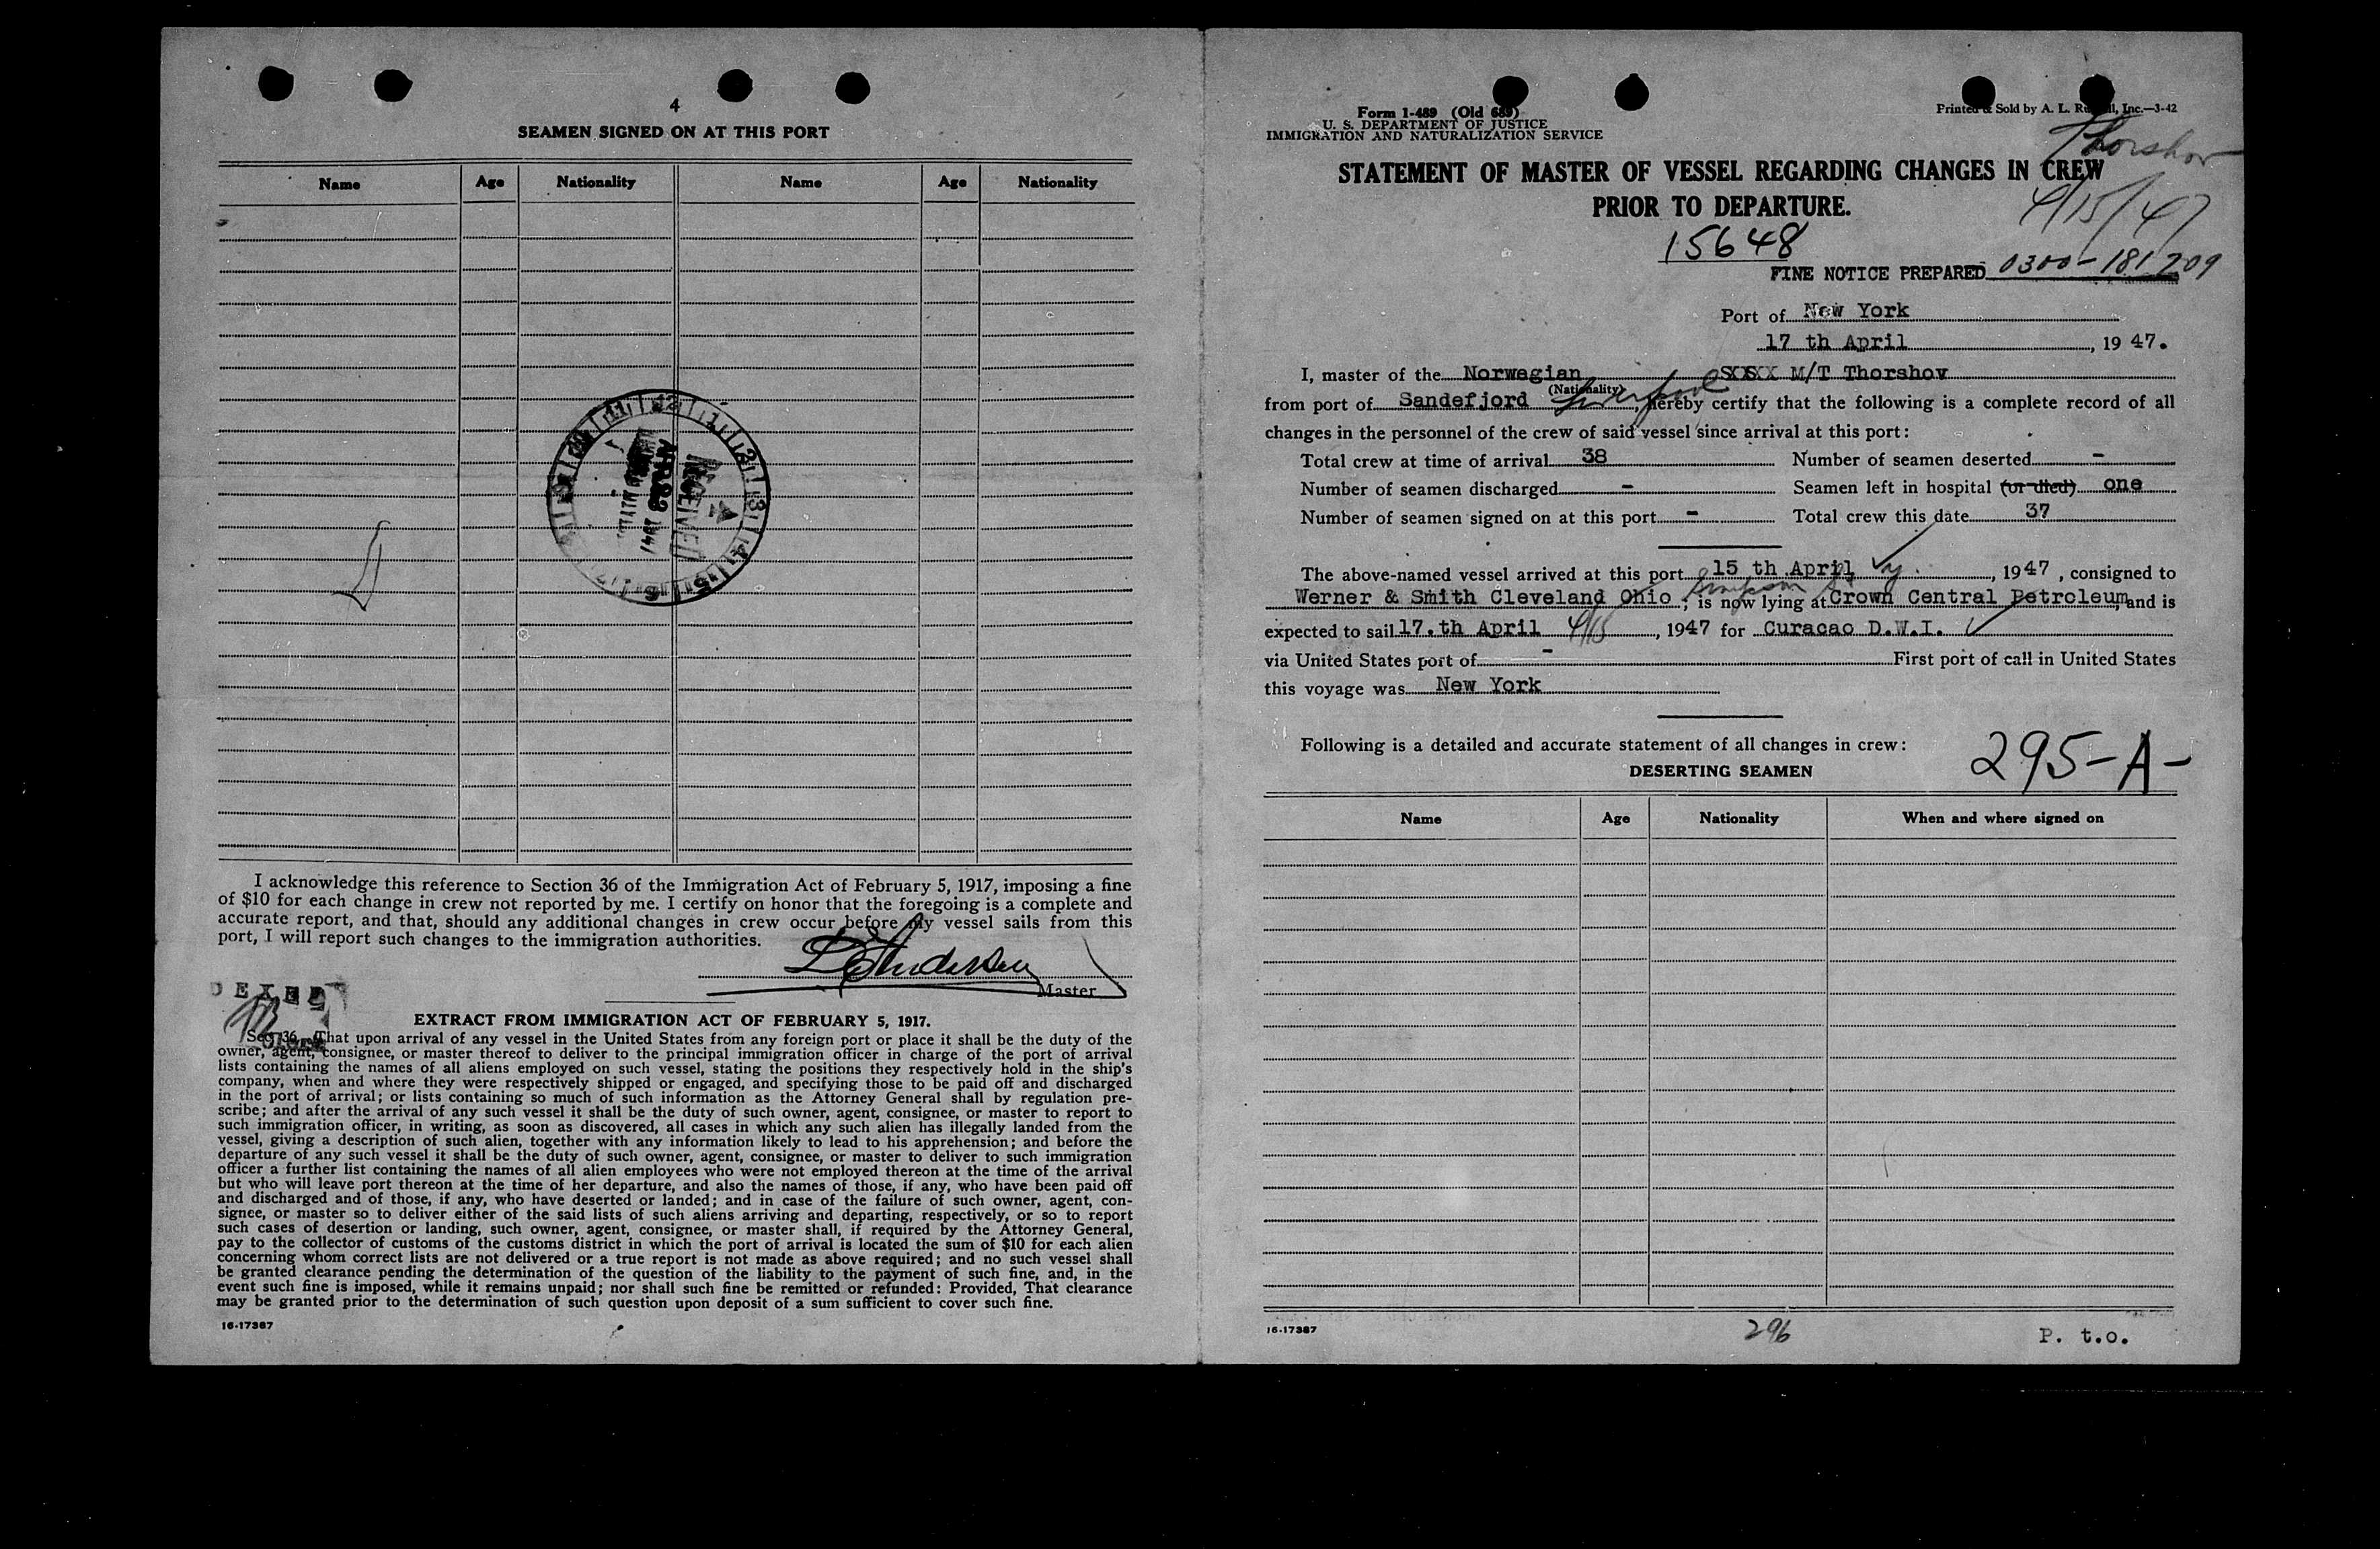 4
SEAMEN SIGNED ON AT THIS PORT
Name Age Nationality Name Age Nationality
RECEIVED
I acknowledge this reference to Section 36 of the Immigration Act of February 5, 1917, imposing a fine
of $10 for each change in crew not reported by me. I certify on honor that the foregoing is a complete and
accurate report, and that, should any additional changes in crew occur before my vessel sails from this
port, I will report such changes to the immigration authorities.
Master
EXTRACT FROM IMMIGRATION ACT OF FEBRUARY 5, 1917.
Sec. 36. That upon arrival of any vessel in the United States from any foreign port or place it shall be the duty of the
owner, agent, consignee, or master thereof to deliver to the principal immigration officer in charge of the port of arrival
lists containing the names of all aliens employed on such vessel, stating the positions they respectively hold in the ship's
company, when and where they were respectively shipped or engaged, and specifying those to be paid off and discharged
in the port of arrival; or lists containing so much of such information as the Attorney General shall by regulation pre-
scribe; and after the arrival of any such vessel it shall be the duty of such owner, agent, consignee, or master to report to
such immigration officer, in writing, as soon as discovered, all cases in which any such alien has illegally landed from the
vessel, giving a description of such alien, together with any information likely to lead to his apprehension; and before the
departure of any such vessel it shall be the duty of such owner, agent, consignee, or master to deliver to such immigration
officer a further list containing the names of all alien employees who were not employed thereon at the time of the arrival
but who will leave port thereon at the time of her departure, and also the names of those, if any, who have been paid off
and discharged and of those, if any, who have deserted or landed; and in case of the failure of such owner, agent, con-
signee, or master so to deliver either of the said lists of such aliens arriving and departing, respectively, or so to report
such cases of desertion or landing, such owner, agent, consignee, or master shall, if required by the Attorney General,
pay to the collector of customs of the customs district in which the port of arrival is located the sum of $10 for each alien
concerning whom correct lists are not delivered or a true report is not made as above required; and no such vessel shall
be granted clearance pending the determination of the question of the liability to the payment of such fine, and, in the
event such fine is imposed, while it remains unpaid; nor shall such fine be remitted or refunded: Provided, That clearance
may be granted prior to the determination of such question upon deposit of a sum sufficient to cover such fine.
16-17387
Form 1-489 (Old 689)
U. S. DEPARTMENT OF JUSTICE
IMMIGRATION AND NATURALIZATION SERVICE
Printed & Sold by A. L. Inc.—3-42
Thorshov
STATEMENT OF MASTER OF VESSEL REGARDING CHANGES IN CREW
PRIOR TO DEPARTURE.
4/15/47
15648
FINE NOTICE PREPARED 0300-181209
Port of New York
17 th April, 1947.
I, master of the Norwegian SXSXX M/T Thorshov
(Nationality)
from port of Sandefjord Liverpool, hereby certify that the following is a complete record of all
changes in the personnel of the crew of said vessel since arrival at this port:
Total crew at time of arrival 38 Number of seamen deserted -
Number of seamen discharged - Seamen left in hospital (or died) one
Number of seamen signed on at this port - Total crew this date 37
The above-named vessel arrived at this port 15 th April, 1947, consigned to
Werner & Smith Cleveland Ohio; is now lying at Crown Central Petroleum, and is
expected to sail 17.th April 4/18, 1947 for Curacao D.W.I.
via United States port of - First port of call in United States
this voyage was New York
Following is a detailed and accurate statement of all changes in crew:
295-A-
DESERTING SEAMEN
Name Age Nationality When and where signed on
16-17387
296
P. t.o.